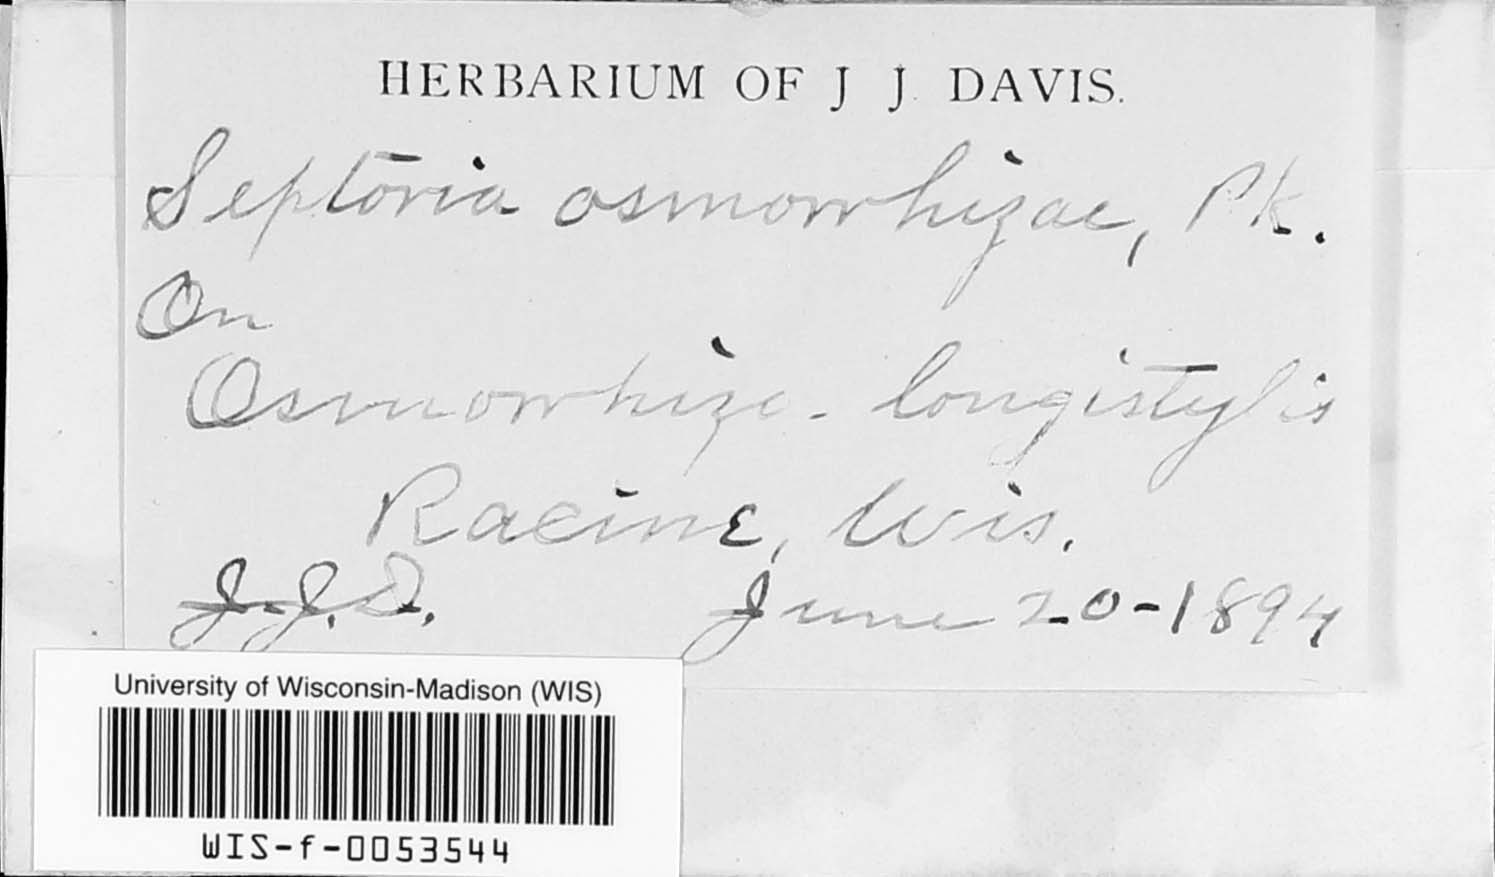 HERBARIUM OF J J. DAVIS.
Septoria osmorrhizae, Pk.
On
Osmorrhiza longistylis
Racine, Wis.
J.J.D. June 20-1894
University of Wisconsin-Madison (WIS)
WIS-f-0053544